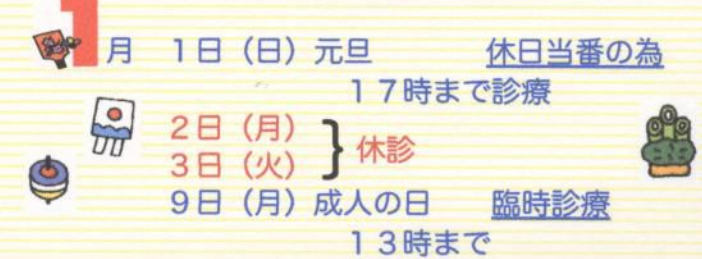 1月 1日（日）元旦 休日当番の為
17時まで診療
2日（月）
3日（火）} 休診
9日（月）成人の日 臨時診療
13時まで